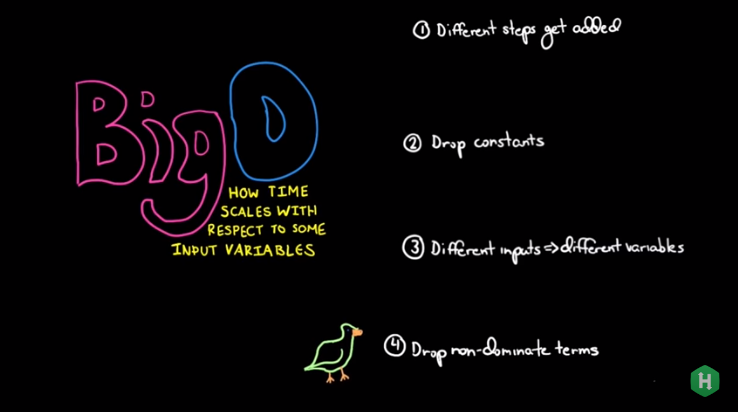 Big O
HOW TIME
SCALES WITH
RESPECT TO SOME
INPUT VARIABLES
① Different steps get added
② Drop constants
③ Different inputs ⇒ different variables
④ Drop non-dominate terms
H